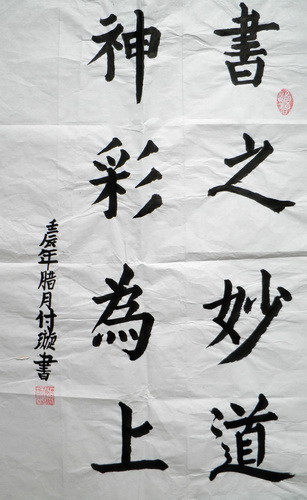 書之妙道
神彩為上
壬辰年腊月付璇書